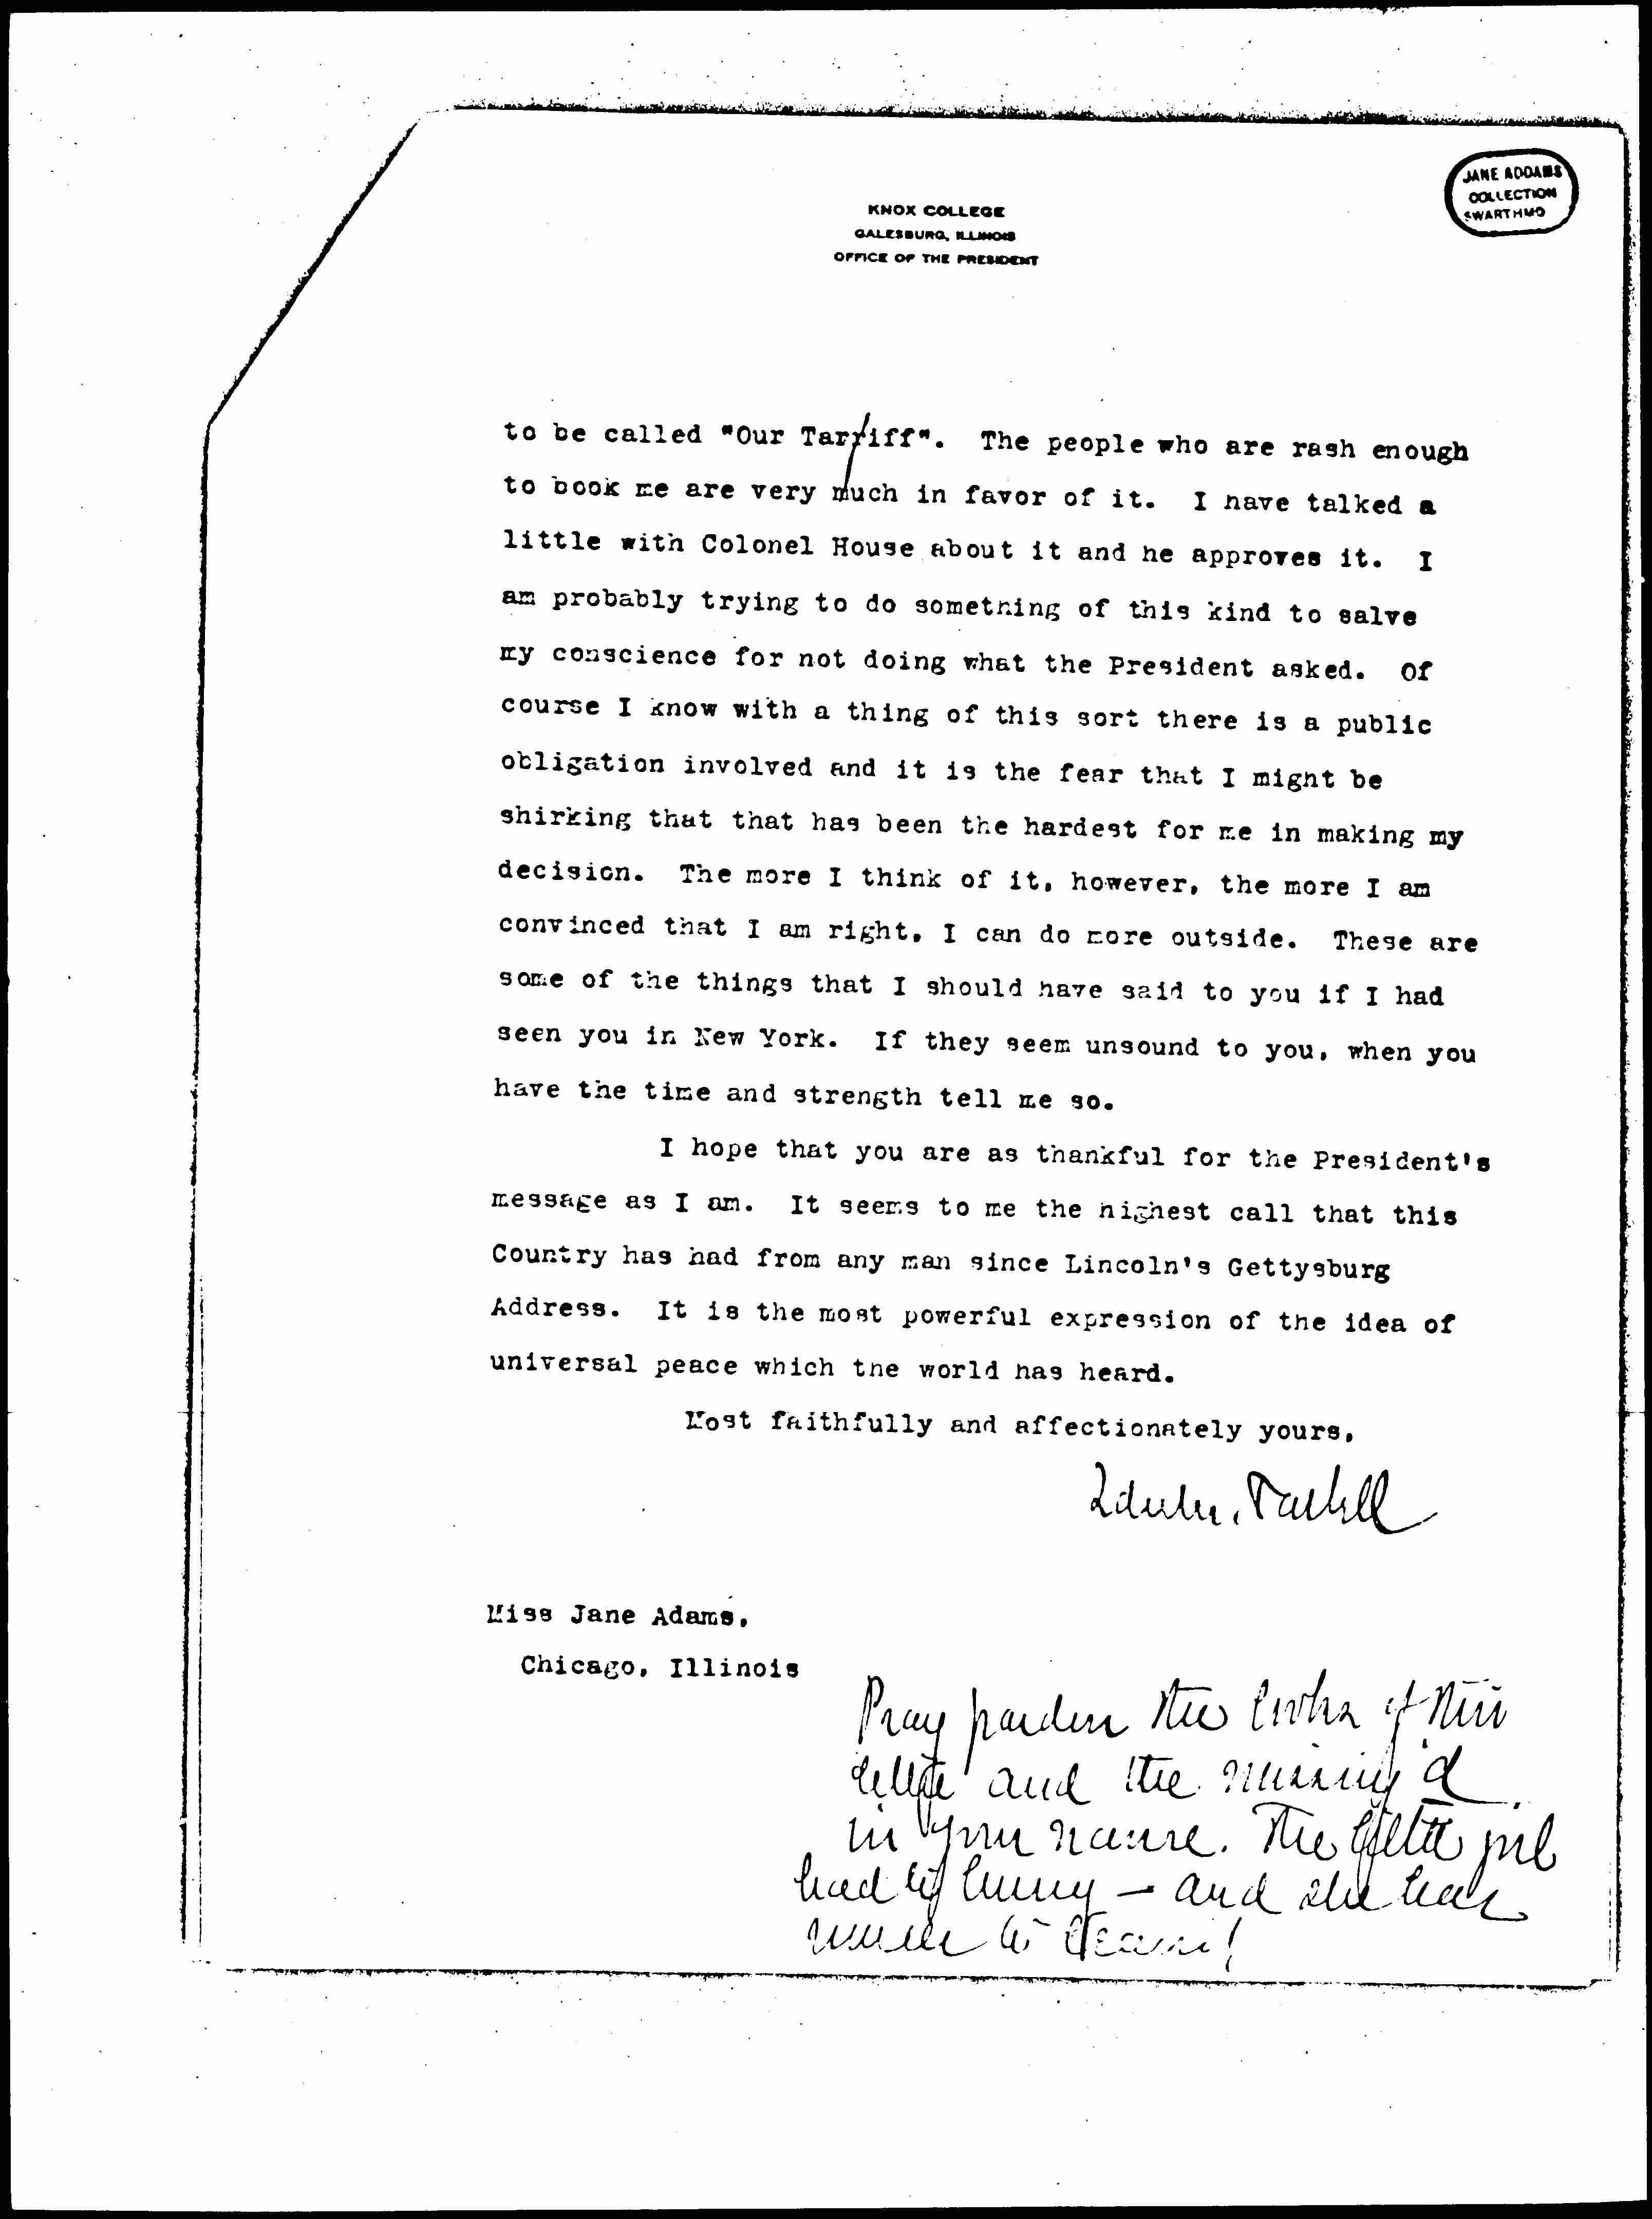 JANE ADDAMS
COLLECTION
SWARTHMO
KNOX COLLEGE
GALESBURG, ILLINOIS
OFFICE OF THE PRESIDENT
to be called "Our Tarriff". The people who are rash enough
to book me are very much in favor of it. I have talked a
little with Colonel House about it and he approves it. I
am probably trying to do something of this kind to salve
my conscience for not doing what the President asked. Of
course I know with a thing of this sort there is a public
obligation involved and it is the fear that I might be
shirking that that has been the hardest for me in making my
decision. The more I think of it, however, the more I am
convinced that I am right, I can do more outside. These are
some of the things that I should have said to you if I had
seen you in New York. If they seem unsound to you, when you
have the time and strength tell me so.
I hope that you are as thankful for the President's
message as I am. It seems to me the highest call that this
Country has had from any man since Lincoln's Gettysburg
Address. It is the most powerful expression of the idea of
universal peace which the world has heard.
Most faithfully and affectionately yours,
Ida M. Tarbell
Miss Jane Adams,
Chicago, Illinois
Pray pardon the looks of this
letter and the missing d
in your name. The little girl
had to hurry – and she has
much to learn!